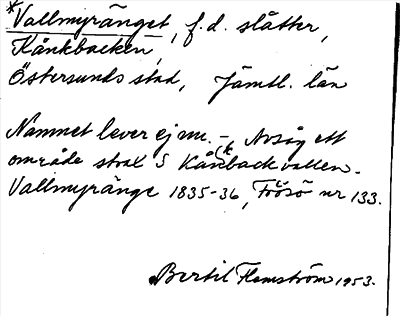 *Vallmyränget, f.d. slåtter,
Kånkbacken,
Östersunds stad, Jämtl. län
Namnet lever ej nu. – Avsåg ett
område strax S Kånkbackvallen.
Vallmyränge 1835-36, Frösö nr 133.
Bertil Flemström 1953.